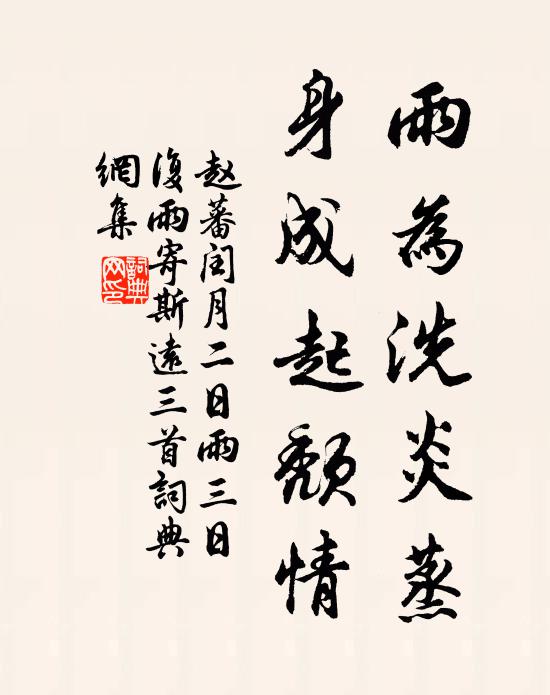 雨為洗炎蒸
身成起頹情
赵蕃闰月二日雨三日
復雨寄斯遠三首詞典
網集
詞典網印